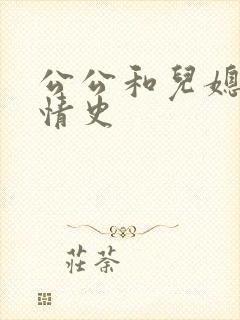 公公和兒媳
情史
莊荼